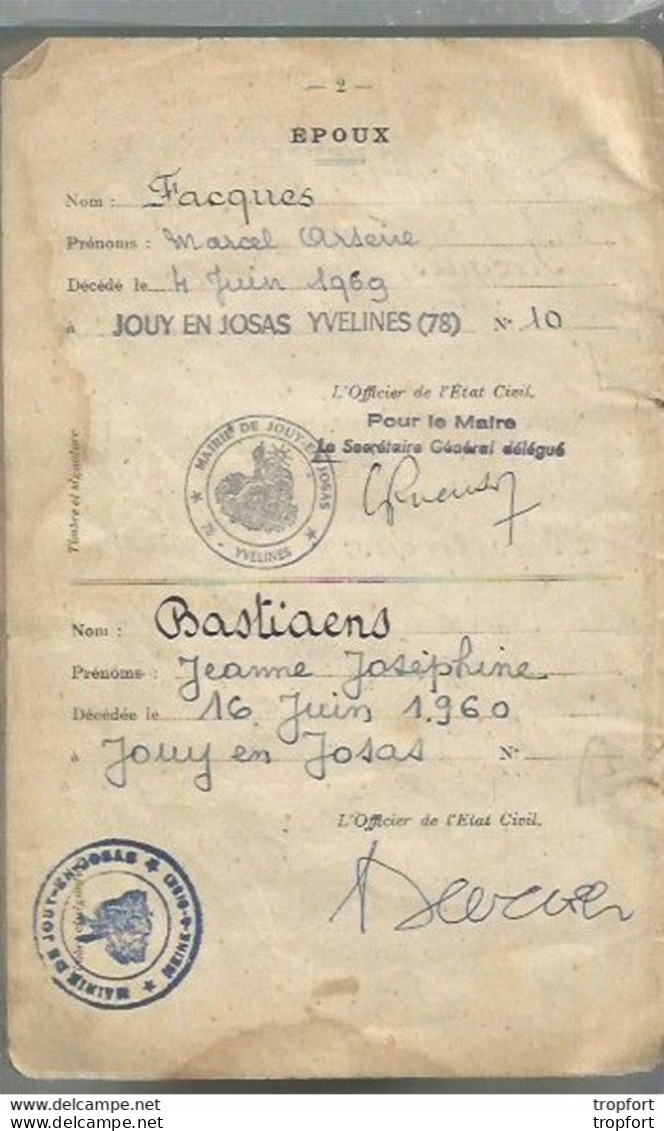 — 2 —
EPOUX
Nom : Facques
Prénoms : Marcel Arsène
Décédé le 4 Juin 1969
à JOUY EN JOSAS YVELINES (78) N° 10
L'Officier de l'État Civil.
Pour le Maire
Le Secrétaire Général délégué
Timbre et signature
MAIRIE DE JOUY-EN-JOSAS
78 - YVELINES
Nom : Bastiaens
Prénoms : Jeanne Joséphine
Décédée le 16 Juin 1960
à Jouy en Josas N°
L'Officier de l'Etat Civil.
MAIRIE DE JOUY-EN-JOSAS
SEINE-&-OISE
www.delcampe.net
www.delcampe.net
tropfort
tropfort